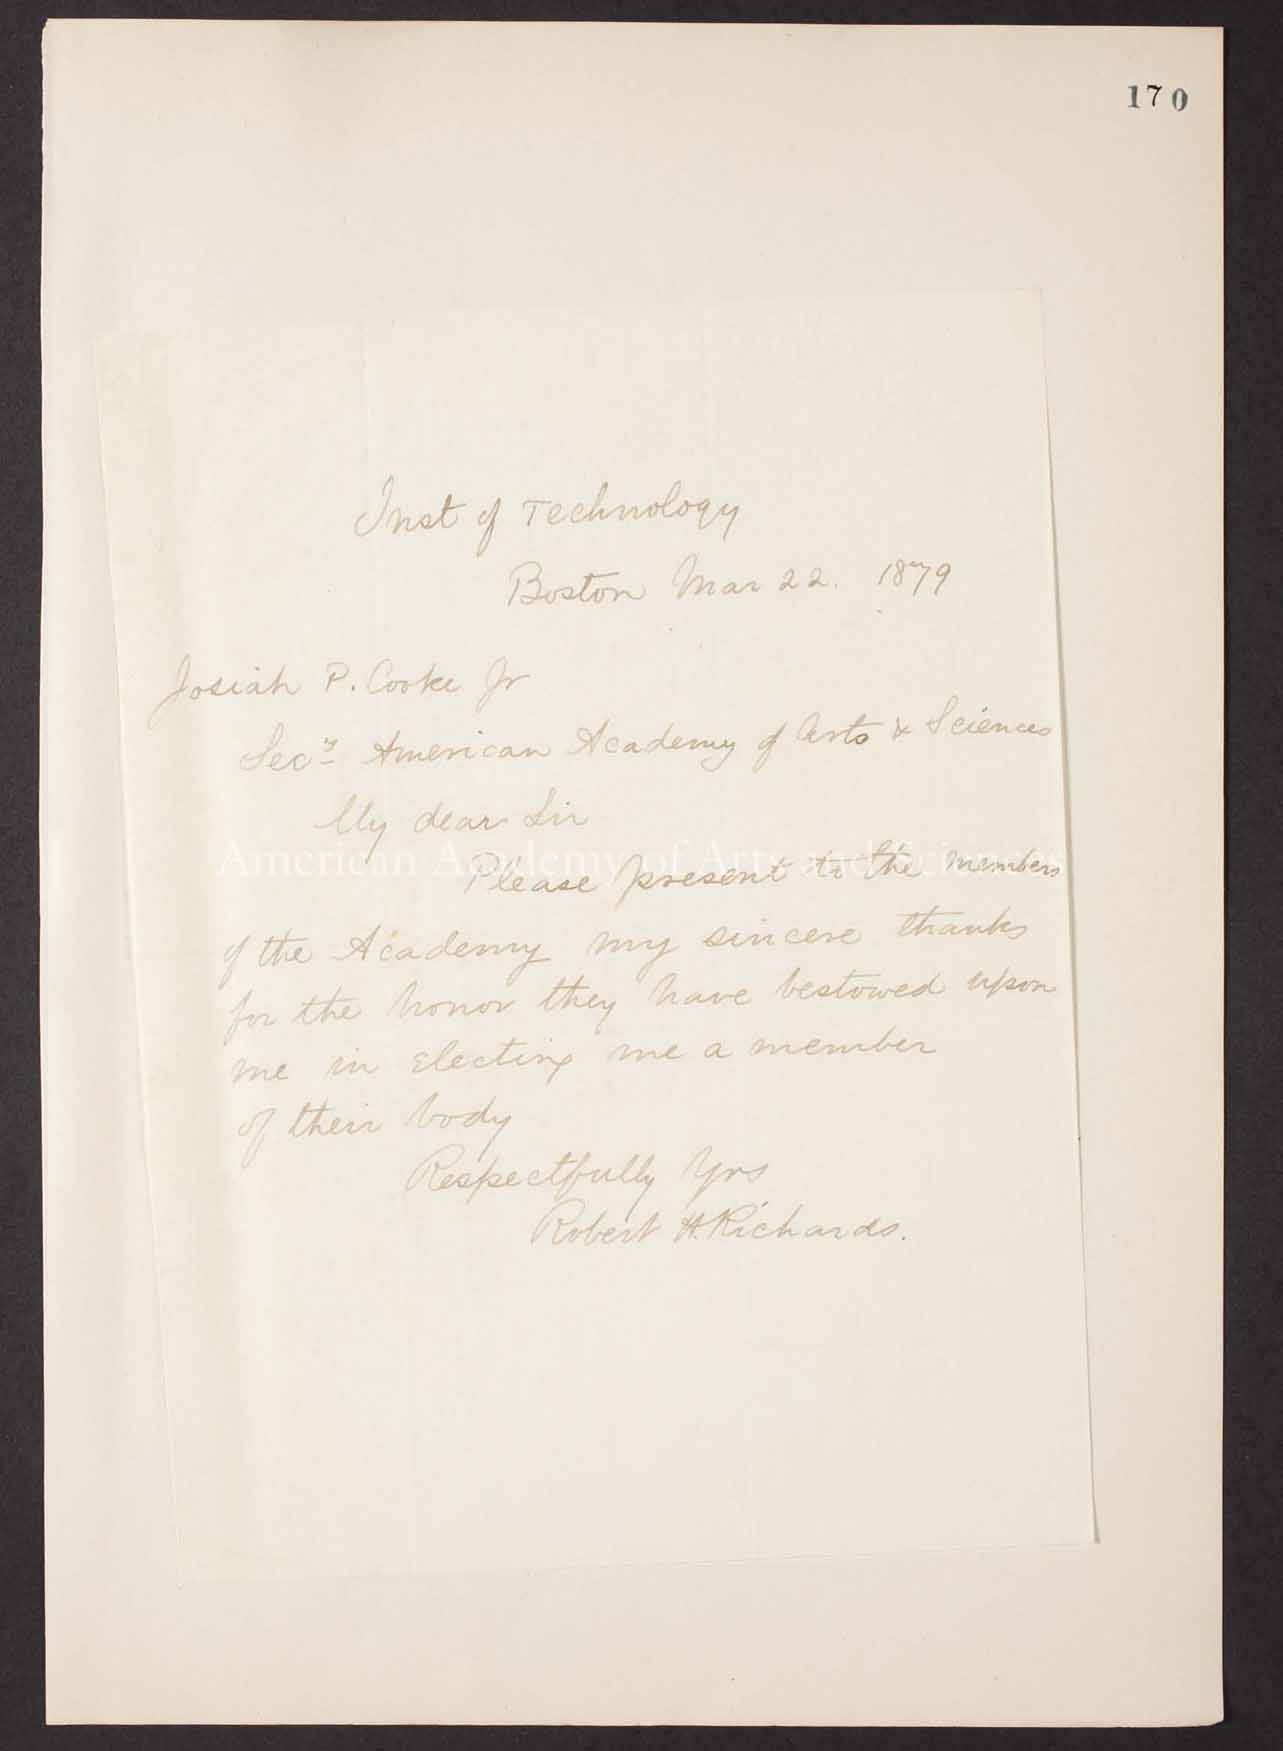 170
Inst of Technology
Boston Mar 22. 1879
Josiah P. Cooke Jr
Secy American Academy of Arts & Sciences
My dear Sir
American Academy of Arts and Sciences
Please present to the members
of the Academy my sincere thanks
for the honor they have bestowed upon
me in electing me a member
of their body
Respectfully Yrs
Robert H. Richards.